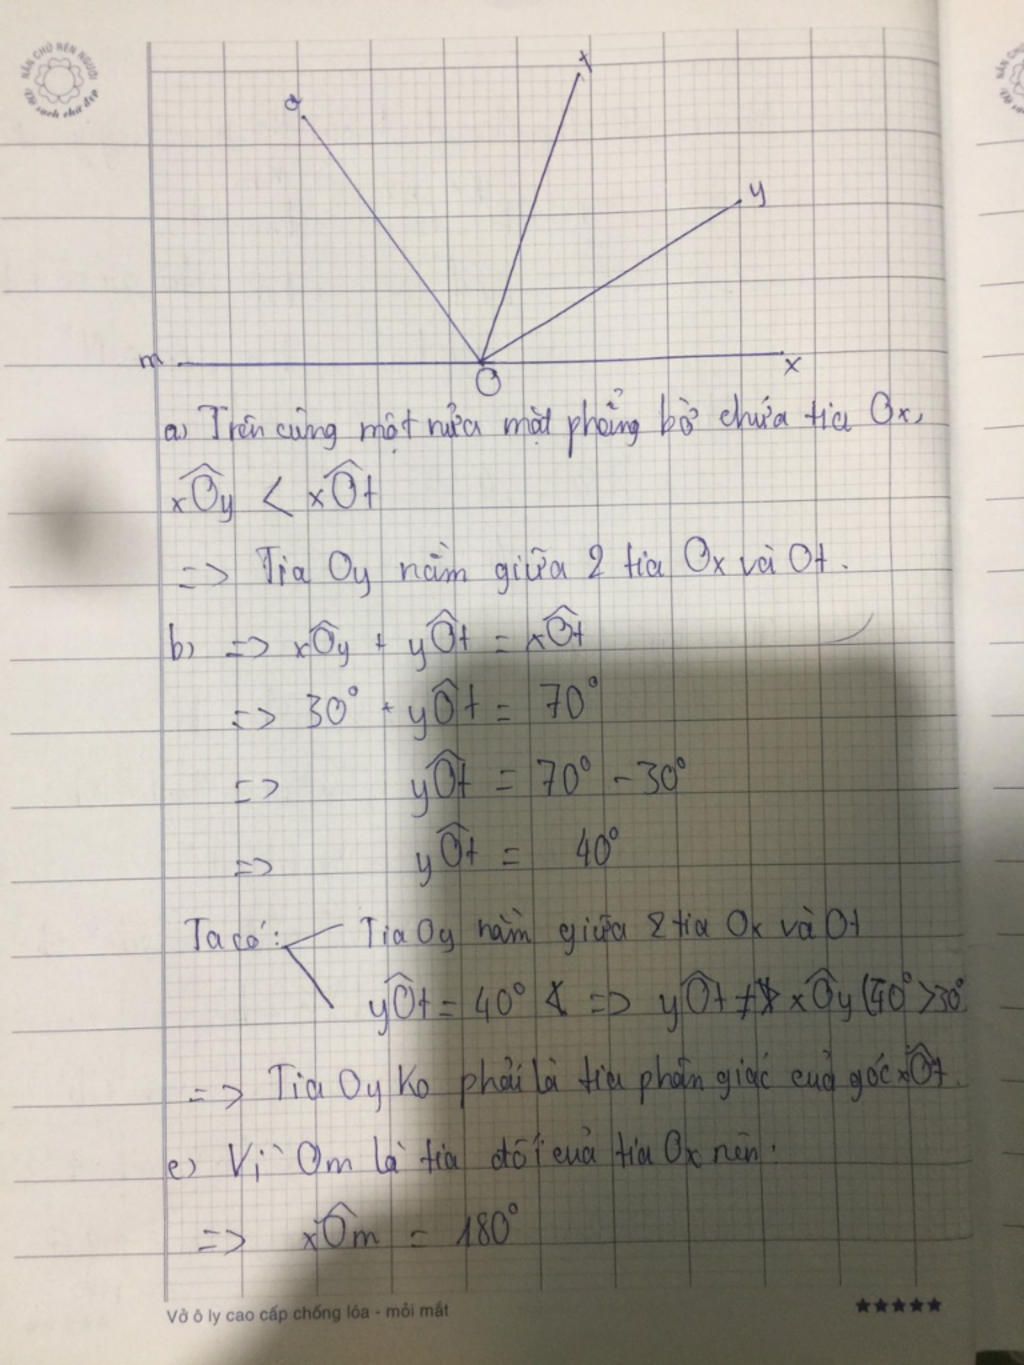 NẮN CHỮ RÈN NGƯỜI
Vở sạch chữ đẹp
a
t
y
m
O
x
a) Trên cùng một nửa mặt phẳng bờ chứa tia Ox,
xÔy < xÔt
=> Tia Oy nằm giữa 2 tia Ox và Ot.
b) => xÔy + yÔt = xÔt
=> 30° + yÔt = 70°
=> yÔt = 70° - 30°
=> yÔt = 40°
Ta có: Tia Oy nằm giữa 2 tia Ox và Ot
yÔt = 40° => yÔt ≠ xÔy (40° > 30°
=> Tia Oy ko phải là tia phân giác của góc xÔt.
c) Vì Om là tia đối của tia Ox nên:
=> xÔm = 180°
Vở ô ly cao cấp chống lóa - mỏi mắt
★★★★★